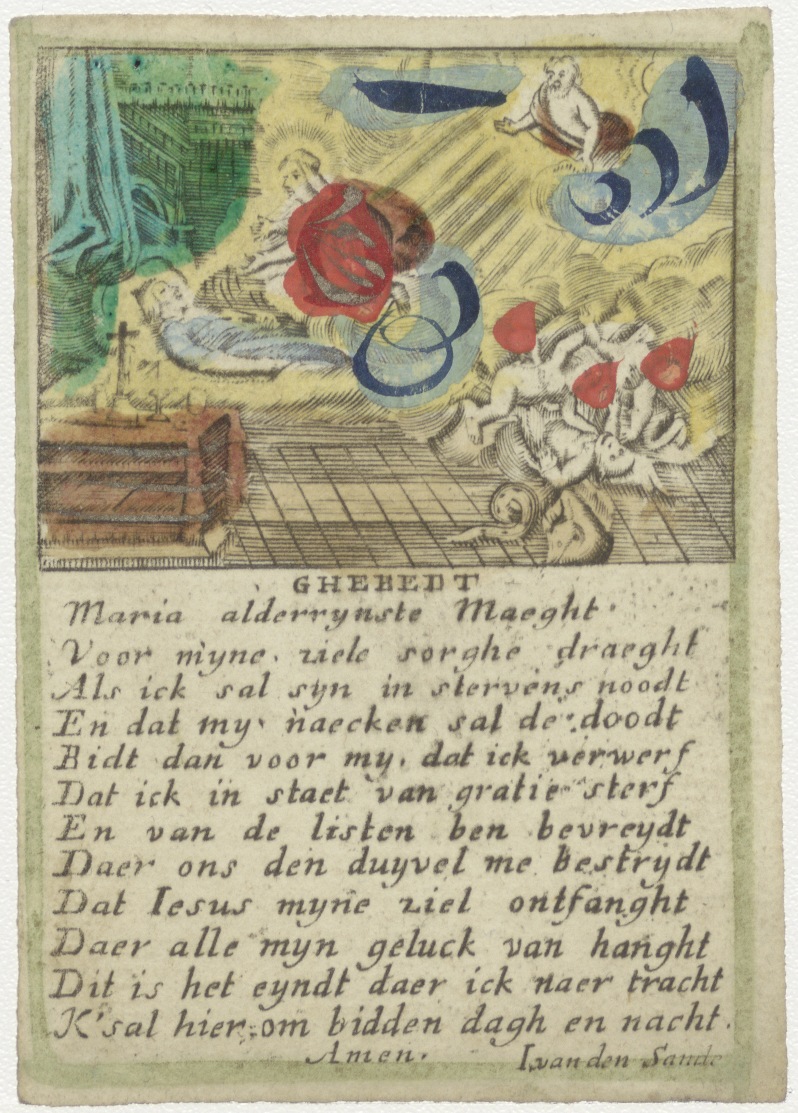 GHEBEDT
Maria alderrynste Maeght.
Voor myne ziele sorghe draeght
Als ick sal syn in stervens noodt
En dat my naecken sal de doodt
Bidt dan voor my, dat ick verwerf
Dat ick in staet van gratie sterf
En van de listen ben bevreydt
Daer ons den duyvel me bestrydt
Dat Iesus myne ziel ontfanght
Daer alle myn geluck van hanght
Dit is het eyndt daer ick naer tracht
K'sal hier om bidden dagh en nacht.
Amen.
I. van den Sande